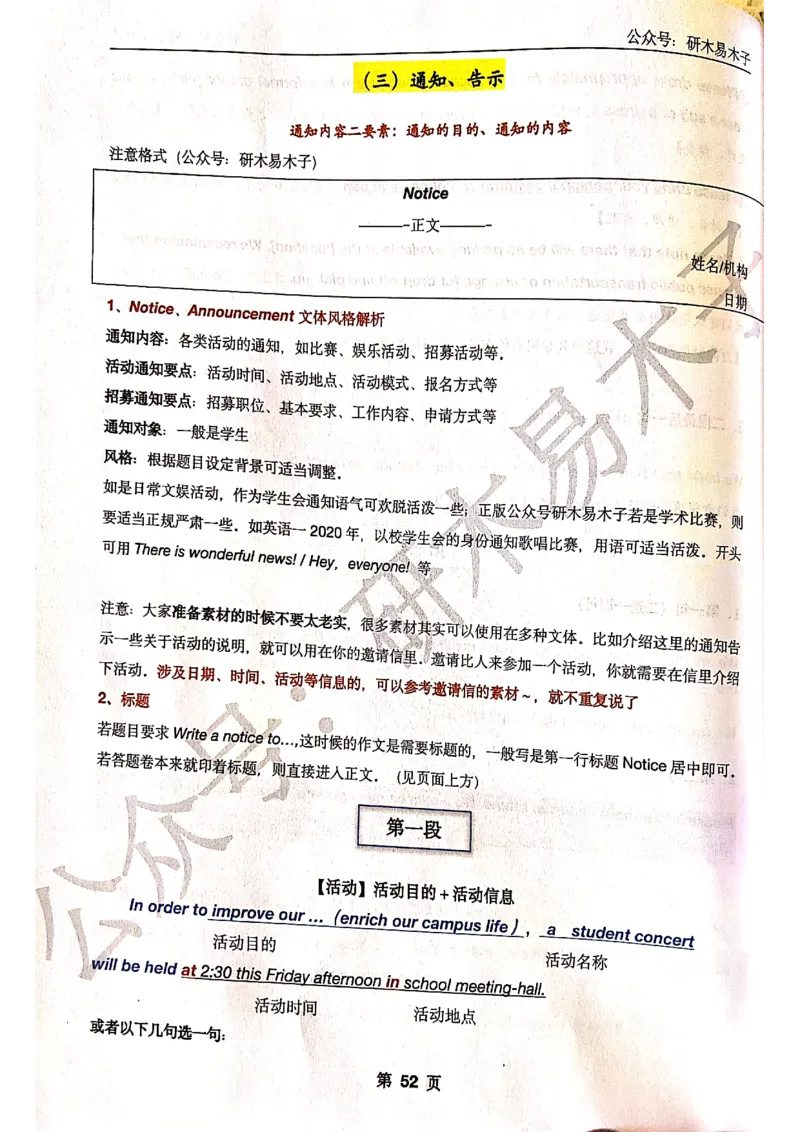 公众号：研木易木子
（三）通知、告示
通知内容二要素：通知的目的、通知的内容
注意格式（公众号：研木易木子）
Notice
———-正文———-
姓名/机构
日期
1、Notice、Announcement 文体风格解析
通知内容：各类活动的通知，如比赛、娱乐活动、招募活动等．
活动通知要点：活动时间、活动地点、活动模式、报名方式等
招募通知要点：招募职位、基本要求、工作内容、申请方式等
通知对象：一般是学生
风格：根据题目设定背景可适当调整．
如是日常文娱活动，作为学生会通知语气可欢脱活泼一些；正版公众号研木易木子若是学术比赛，则
要适当正规严肃一些．如英语一 2020 年，以校学生会的身份通知歌唱比赛，用语可适当活泼．开头
可用 There is wonderful news! / Hey，everyone! 等
注意：大家准备素材的时候不要太老实，很多素材其实可以使用在多种文体．比如介绍这里的通知告
示一些关于活动的说明，就可以用在你的邀请信里．邀请比人来参加一个活动，你就需要在信里介绍
下活动．涉及日期、时间、活动等信息的，可以参考邀请信的素材～，就不重复说了
2、标题
若题目要求 Write a notice to…,这时候的作文是需要标题的，一般写是第一行标题 Notice 居中即可．
若答题卷本来就印着标题，则直接进入正文．（见页面上方）
第一段
【活动】活动目的 + 活动信息
In order to improve our …（enrich our campus life），a student concert
活动目的 活动名称
will be held at 2:30 this Friday afternoon in school meeting-hall.
活动时间 活动地点
或者以下几句选一句：
第 52 页
公众号：研木易木子